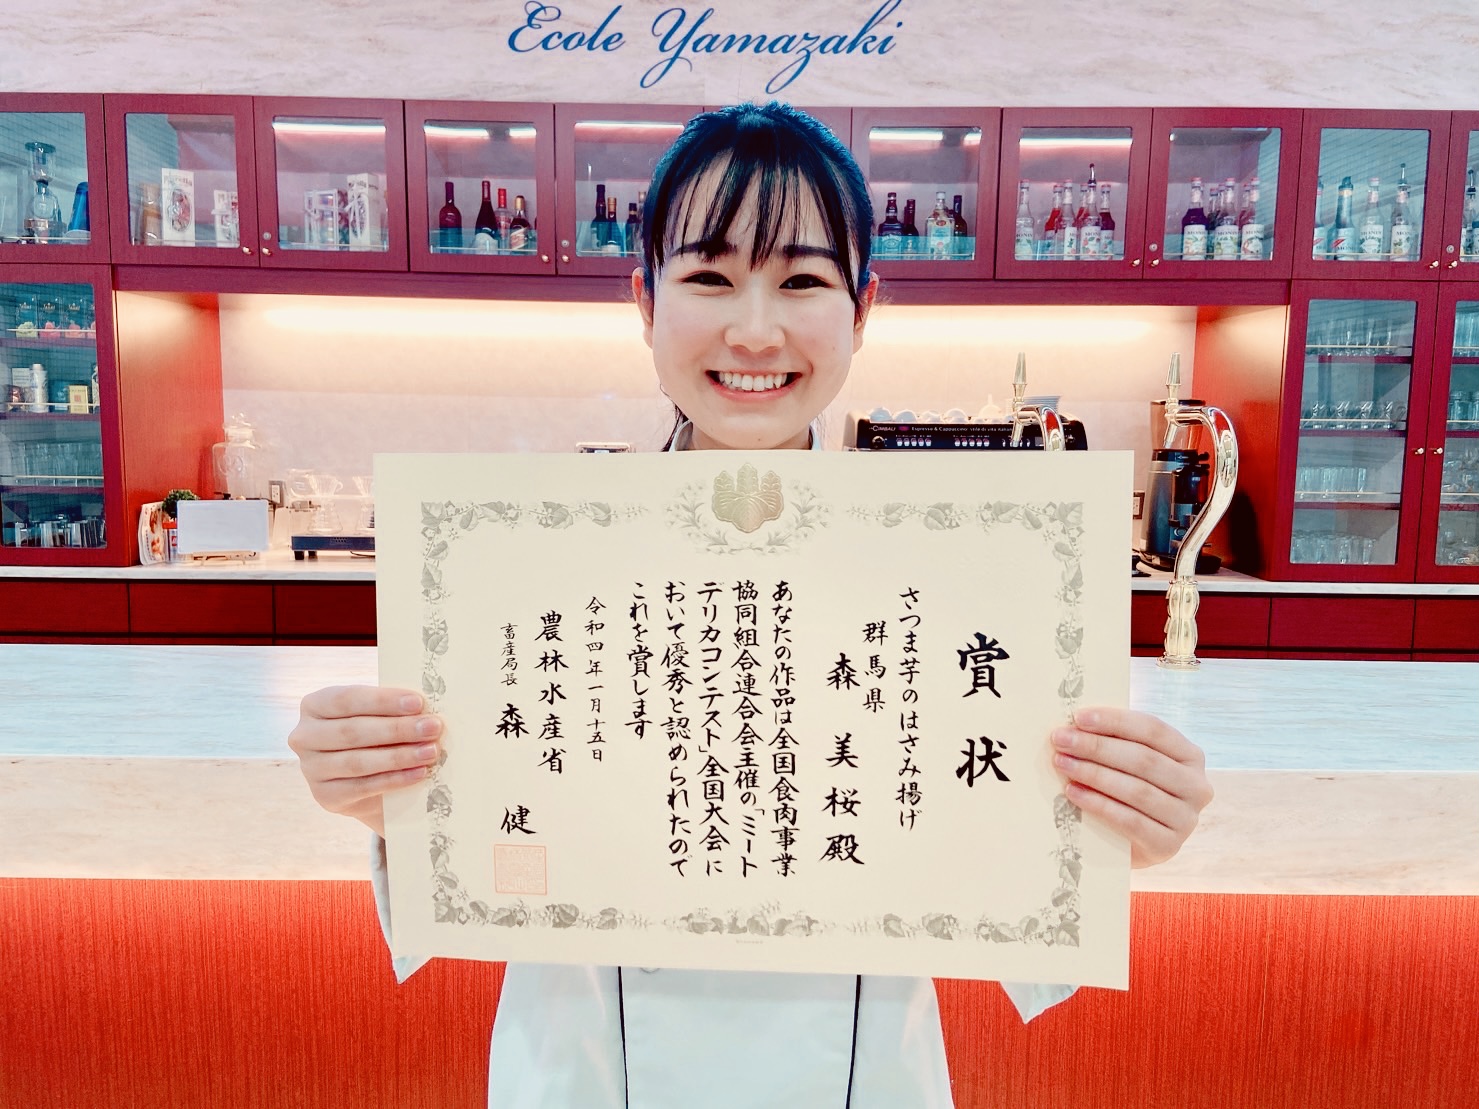 Ecole Yamazaki
賞状
さつま芋のはさみ揚げ
群馬県
森美桜殿
あなたの作品は全国食肉事業
協同組合連合会主催の「ミート
デリカコンテスト」全国大会に
おいて優秀と認められたので
これを賞します
令和四年一月十五日
農林水産省
畜産局長 森 健
CIMBALI
Espresso & Cappuccino